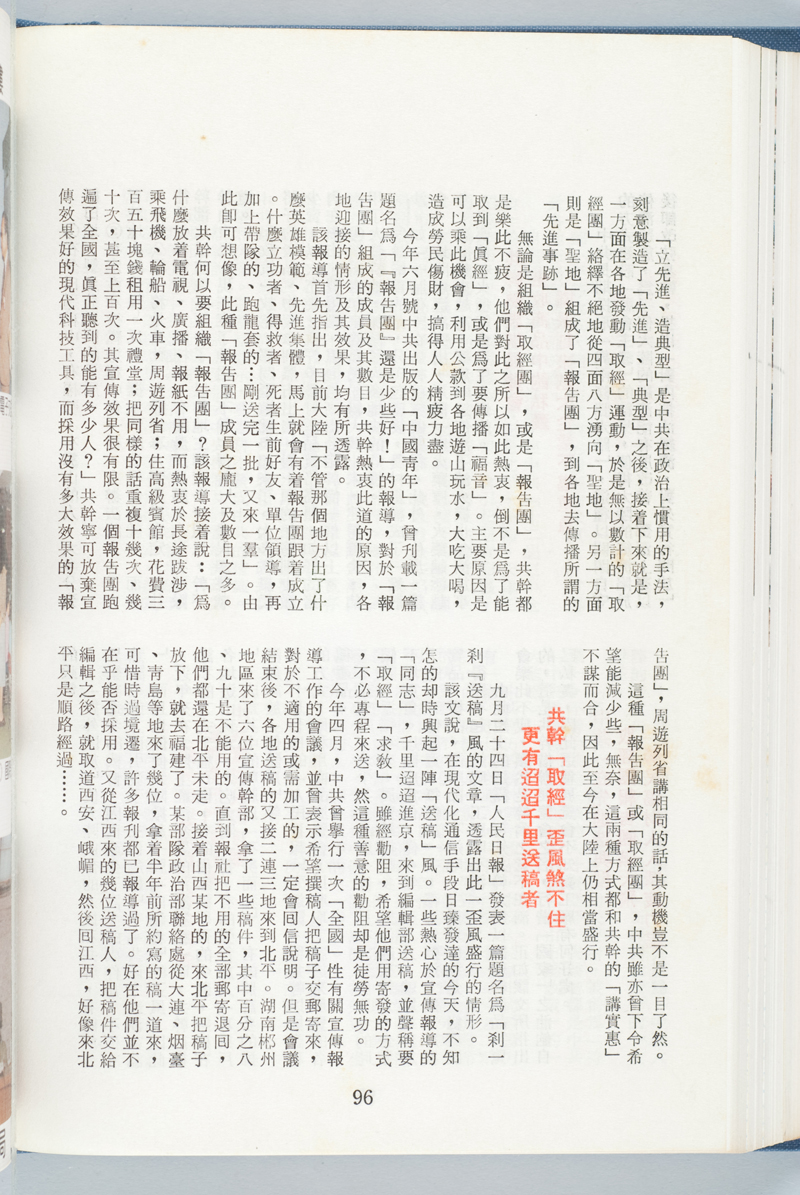 「立先進、造典型」是中共在政治上慣用的手法，
刻意製造了「先進」、「典型」之後，接着下來就是，
一方面在各地發動「取經」運動，於是無以數計的「取
經團」絡繹不絕地從四面八方湧向「聖地」。另一方面
則是「聖地」組成了「報告團」，到各地去傳播所謂的
「先進事跡」。
無論是組織「取經團」，或是「報告團」，共幹都
是樂此不疲，他們對此之所以如此熱衷，倒不是為了能
取到「眞經」，或是爲了要傳播「福音」。主要原因是
可以乘此機會，利用公款到各地遊山玩水，大吃大喝，
造成勞民傷財，搞得人人精疲力盡。
今年六月號中共出版的「中國青年」，曾刊載一篇
題名爲「『報告團』還是少些好！」的報導，對於「報
告團」組成的成員及其數目，共幹熱衷此道的原因，各
地迎接的情形及其效果，均有所透露。
該報導首先指出，目前大陸「不管那個地方出了什
麼英雄模範、先進集體，馬上就會有着報告團跟着成立
。什麼立功者、得救者、死者生前好友、單位領導，再
加上帶隊的、跑龍套的…剛送完一批，又來一羣」。由
此卽可想像，此種「報告團」成員之龐大及數目之多。
共幹何以要組織「報告團」？該報導接着說：「爲
什麼放着電視、廣播、報紙不用，而熱衷於長途跋涉，
乘飛機、輪船、火車，周遊列省；住高級賓館，花費三
百五十塊錢租用一次禮堂；把同樣的話重複十幾次、幾
十次，甚至上百次。其宣傳效果很有限。一個報告團跑
遍了全國，眞正聽到的能有多少人？」共幹寧可放棄宣
傳效果好的現代科技工具，而採用沒有多大效果的「報
告團」，周遊列省講相同的話，其動機豈不是一目了然。
這種「報告團」或「取經團」，中共雖亦曾下令希
望能減少些，無奈，這兩種方式都和共幹的「講實惠」
不謀而合，因此至今在大陸上仍相當盛行。
共幹「取經」歪風煞不住
更有迢迢千里送稿者
九月二十四日「人民日報」發表一篇題名爲「刹一
刹『送稿』風的文章，透露出此一歪風盛行的情形。
該文說，在現代化通信手段日臻發達的今天，不知
怎的却時興起一陣「送稿」風。一些熱心於宣傳報導的
「同志」，千里迢迢進京，來到編輯部送稿，並聲稱要
「取經」「求教」。雖經勸阻，希望他們用寄發的方式
，不必專程來送，然這種善意的勸阻却是徒勞無功。
今年四月，中共曾舉行一次「全國」性有關宣傳報
導工作的會議，並曾表示希望撰稿人把稿子交郵寄來，
對於不適用的或需加工的，一定會回信說明。但是會議
結束後，各地送稿的又接二連三地來到北平。湖南郴州
地區來了六位宣傳幹部，拿了一些稿件，其中百分之八
、九十是不能用的。直到報社把不用的全部郵寄退回，
他們都還在北平未走。接着山西某地的，來北平把稿子
放下，就去福建了。某部隊政治部聯絡處從大連、烟臺
、靑島等地來了幾位，拿着半年前所約寫的稿一道來，
可惜時過境遷，許多報刊都已報導過了。好在他們並不
在乎能否採用。又從江西來的幾位送稿人，把稿件交給
編輯之後，就取道西安、峨嵋，然後回江西，好像來北
平只是順路經過……。
96